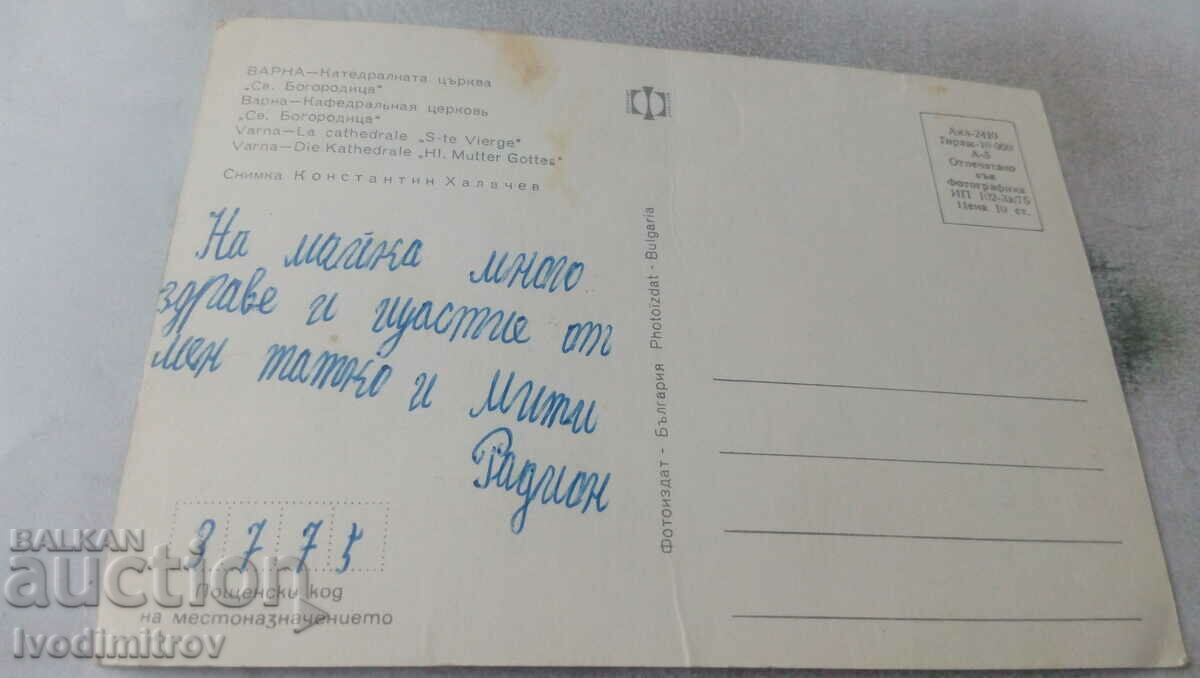 ВАРНА—Катедралната църква
„Св. Богородица"
Варна—Кафедральная церковь
„Св. Богородица"
Varna—La cathedrale „S-te Vierge"
Varna—Die Kathedrale „Hl. Mutter Gottes"
Снимка Константин Халачев
На майка много
здраве и щастие от
мен татко и Мити
Радион
9775
Пощенски код
на местоназначението
Фотоиздат - България Photoizdat - Bulgaria
Акл-2410
Тираж-10 000
А-5
Отпечатано
във
Фотографика
ИП 102-Зх/75
Цена 10 ст.
BALKAN
auction
Ivodimitrov